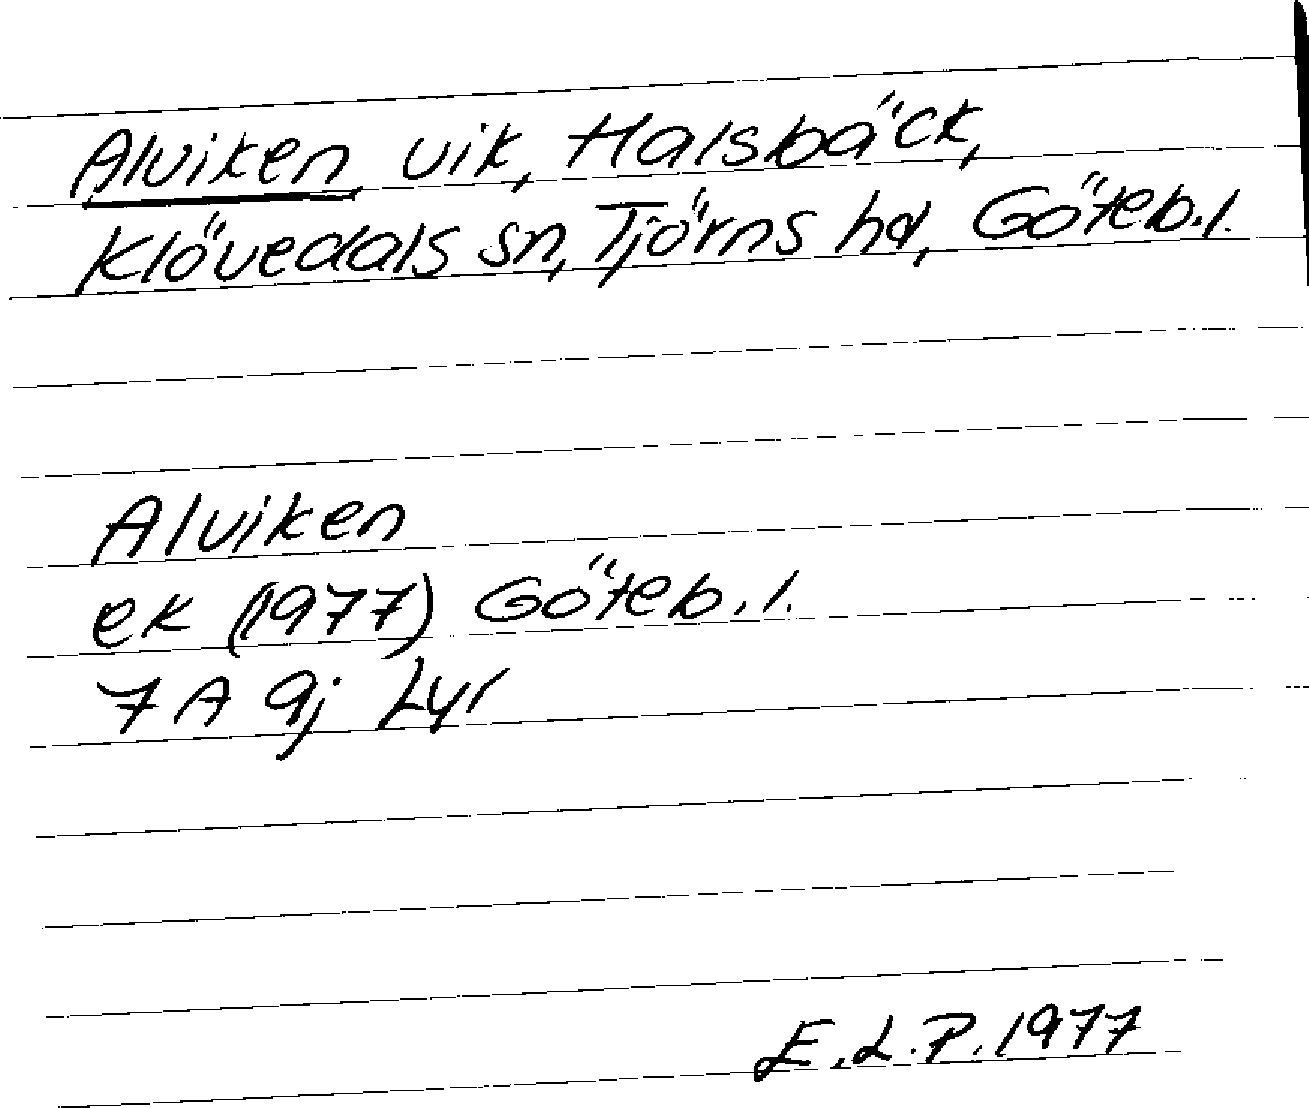 Alviken vik, Halsbäck,
Klövedals sn, Tjörns hd, Göteb.l.
Alviken
ek (1977) Göteb.l.
7A 9j Lyr
E.L.P. 1977